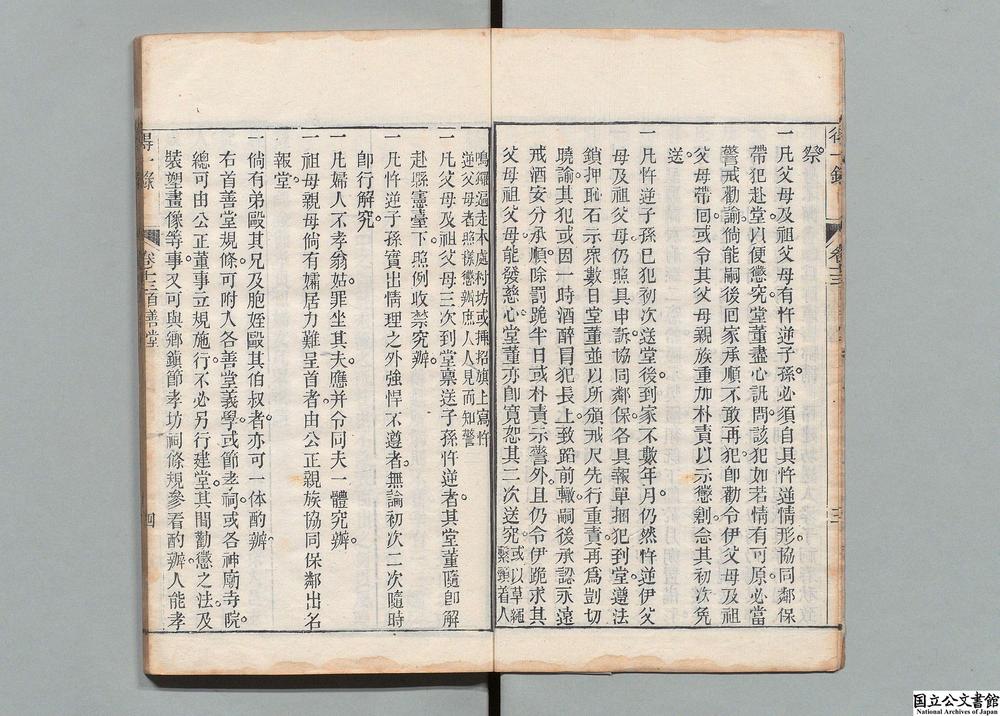 祭
一凡父母及祖父母有忤逆子孫必須自具忤逆情形協同鄰保
帶犯赴堂以便懲究堂董盡心訊問該犯如若情有可原必當
警戒勸諭倘能嗣後回家承順不敢再犯卽勸令伊父母及祖
父母帶回或令其父母親族重加朴責以示懲創念其初次免
送
一凡忤逆子孫已犯初次送堂後到家不數年月仍然忤逆伊父
母及祖父母仍照具申訴協同鄰保各具報單捆犯到堂遵法
鎖押恥石示衆數日堂董並以所頒戒尺先行重責再爲剴切
曉諭其犯或因一時酒醉冐犯長上致蹈前轍嗣後承認永遠
戒酒安分承順除罰跪半日或朴責示警外且仍令伊跪求其
父母祖父母能發慈心堂董亦卽寬恕其二次送究或以草繩
繫頭着人
鳴鑼遍走本處村坊或揷招旗上寫忤
逆父母者照樣懲辦庶人人見而知警
一凡父母及祖父母三次到堂稟送子孫忤逆者其堂董隨卽解
赴縣憲臺下照例收禁究辦
一凡忤逆子孫實出情理之外強悍不遵者無論初次二次隨時
卽行解究
一凡婦人不孝翁姑罪坐其夫應并令同夫一體究辦
一祖母親母倘有孀居力難呈首者由公正親族協同保鄰出名
報堂
一倘有弟毆其兄及胞姪毆其伯叔者亦可一体酌辦
右首善堂規條可附入各善堂義學或節孝祠或各神廟寺院
總可由公正董事立規施行不必另行建堂其間勸懲之法及
裝塑畫像等事又可與鄉鎮節孝坊祠條規參看酌辦人能孝
得一錄
卷十三 首善堂
四
国立公文書館
National Archives of Japan